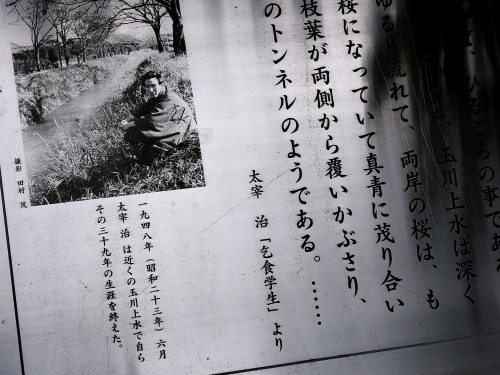 ひるころの事であ
ると、玉川上水は深く
ゆると流れて、両岸の桜は、も
桜になっていて真青に茂り合い
枝葉が両側から覆いかぶさり、
のトンネルのようである。……
太宰 治「乞食学生」より
撮影 田村 茂
一九四八年(昭和二十三年)六月
太宰 治 は近くの玉川上水で自ら
その三十九年の生涯を終えた。